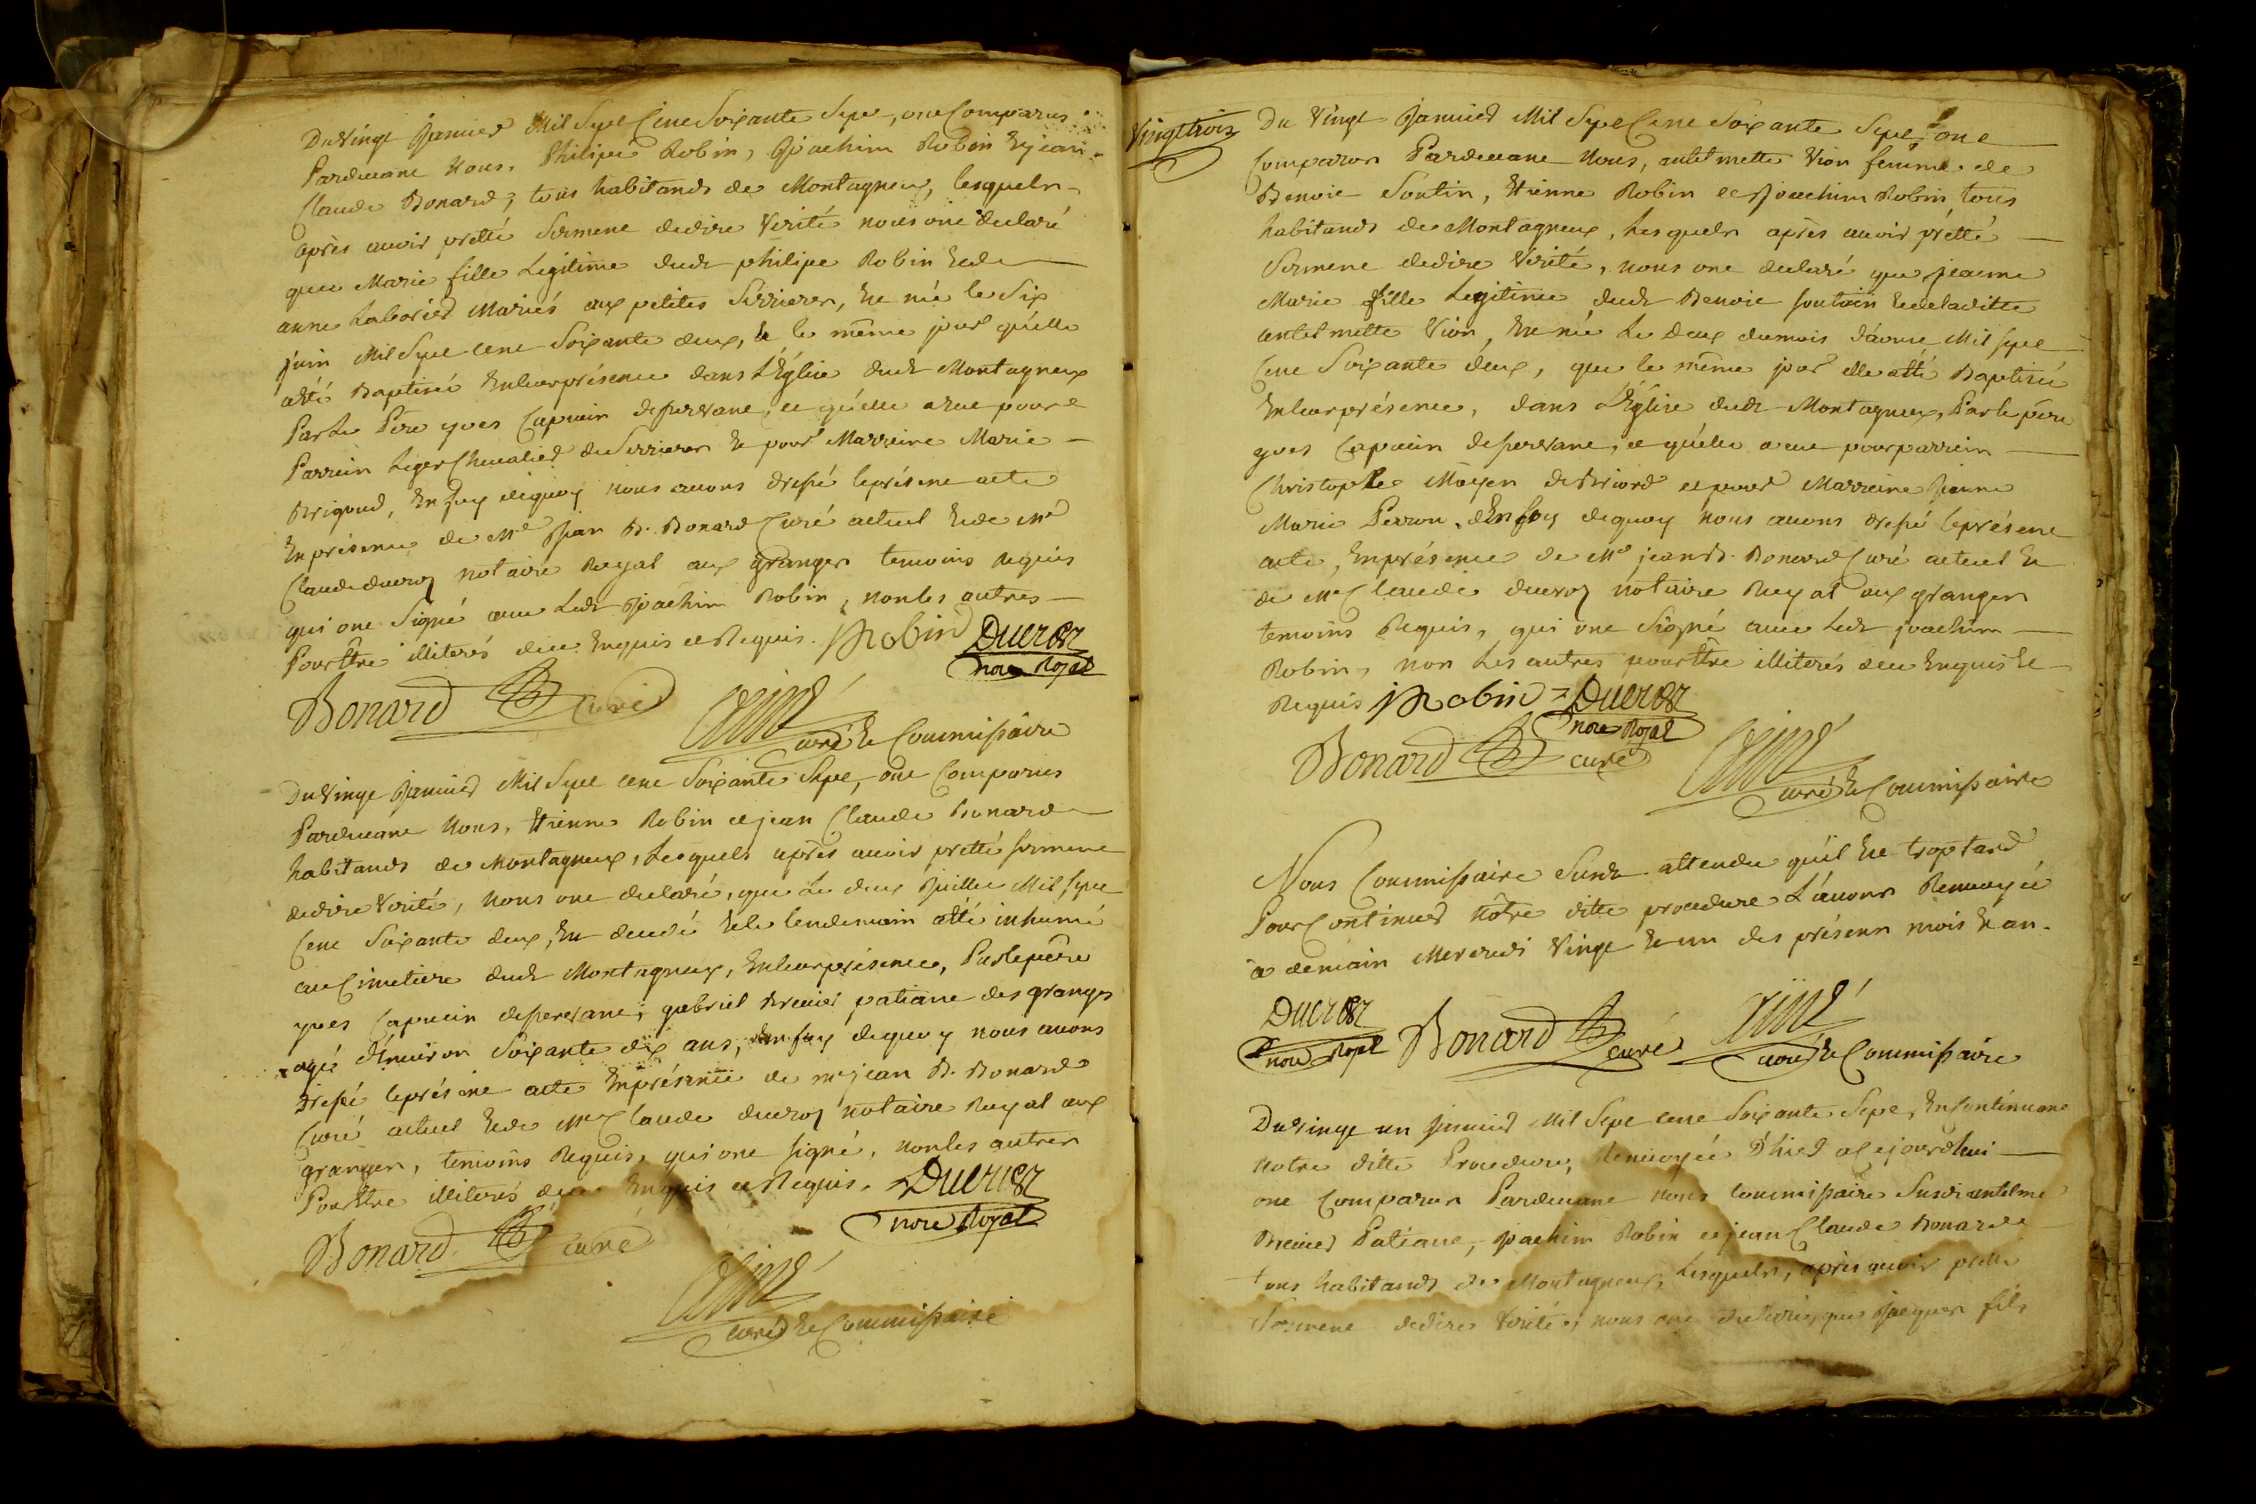 Du vingt Janvier Mil Sept Cent Soixante Sept, ont Comparus
Pardevant Nous, Philipe Robin, Joachim Robin Et jean
Claude Bonard, tous habitands de Montagneux, lesquels
après avoir pretté Serment dedire Verité nous ont declaré
que Marie fille Legitime dudt philipe Robin Et de
anne Laborier Mariés aux petites Serrieres, Est née le Six
juin Mil Sept Cent Soixante deux, Et le même jour qu'elle
a été Baptisée En leur présence dans L'Eglise dudt Montagneux
Par Le Pere yves Capucin deservant, et qu'elle a eut pour
Parrein Leger Chevalier de Serrieres Et pour Marreine Marie
Brigoud, En foy dequoy nous avons dressé le présent acte
En présence de Me Jean B. Bonard Curé actuel Et de Me
Claude ducroz notaire Royal aux granges temoins Requis
qui ont Signé avec Ledt Joachim Robin, non les autres
Pour Etre illiterés de ce Enquis et Requis. J Robin Ducroz
nore Royal
Bonard curé
curé Et Commissaire
Du vingt Janvier Mil Sept Cent Soixante Sept, ont Comparus
Pardevant Nous, Etienne Robin et jean Claude Bonard
habitands de Montagneux, Lesquels après avoir pretté serment
dedire Verité, Nous ont declaré, que Le deux Juillet Mil Sept
Cent Soixante deux, Est decedé Et le lendemain a été inhumé
au Cimetiere dudt Montagneux, En leur présence, Par le pere
yves Capucin deservant, gabriel Breviet patiant des granges
agé d'Environ Soixante dix ans, En foy dequoy nous avons
dressé le présent acte En présence de me jean B. Bonard
Curé actuel Et de Me Claude ducroz notaire Royal aux
granges, temoins Requis, qui ont signé, non les autres
Pour Etre illiterés de ce Enquis et Requis. Ducroz
nore Royal
Bonard curé
curé Et Commissaire
Vingt trois
Du Vingt Janvier Mil Sept Cent Soixante Sept ont
Comparus Pardevant Nous, antelmette Vion femme de
Benoit Soutin, Etienne Robin et Joachim Robin, tous
habitands de Montagneux, Lesquels après avoir pretté
Serment dedire Verité, nous ont declaré que jeanne
Marie fille Legitime dudt Benoit soutin Et de laditte
antelmette Vion, Est née Le deux du mois d'aoust Mil sept
Cent Soixante deux, que le même jour elle a été Baptisée
En leur présence, dans L'Eglise dudt Montagneux, Par le pere
yves Capucin deservant, et qu'elle a eut pour parrein
Christophe Moyen de Briord et pour Marreine Jeanne
Marie Perron. En foy dequoy nous avons dressé le présent
acte, En présence de Me jean B. Bonard Curé actuel Et
de Me Claude ducroz notaire Royal aux granges
temoins Requis, qui ont Signé avec Ledt joachim
Robin, non Les autres pour Etre illiterés de ce Enquis Et
Requis J Robin Ducroz
nore Royal
Bonard curé
curé Et Commissaire
Nous Commissaire Susdt attendu qu'il Est trop tard
Pour Continuer nôtre ditte procedure L'avons Renvoyée
a demain Mercredi Vingt Et un des présens mois Et an.
Ducroz
nore Royal Bonard curé
curé Et Commissaire
Du vingt un Janvier Mil Sept Cent Soixante Sept, En Continuant
notre ditte Procedure, Renvoyée D'hier a cejourdhui
ont Comparus Pardevant nous Commissaire Susdt antelme
Breviet Patiant, Joachim Robin et jean Claude Bonard
tous habitands de Montagneux, Lesquels, après avoir pretté
Serment dedire Verité, nous ont declaré, que Jacques fils